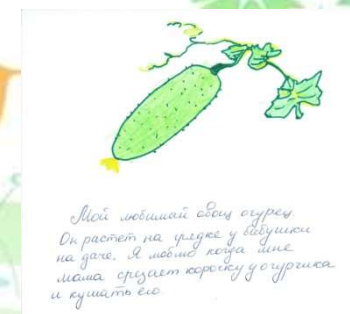 Мой любимай овощ огурец.
Он растет на грядке у бабушки
на даче. Я люблю когда мне
мама срезает корочку у огурчика
и кушать его.